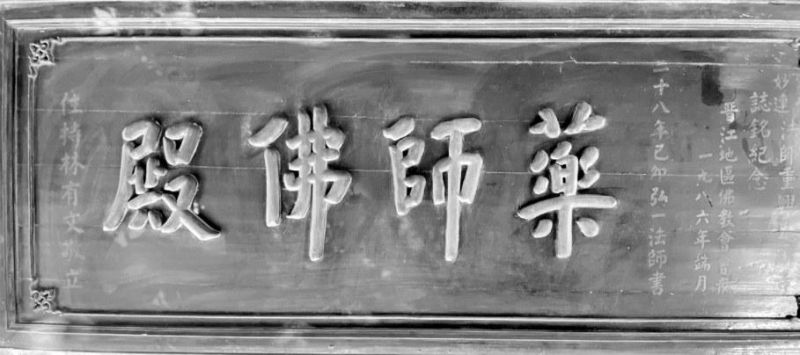 妙連法師重
誌銘紀念
晋江地區佛教會
一九八六年端月
二十八年己卯弘一法師書
藥師佛殿
住持林有文敬立